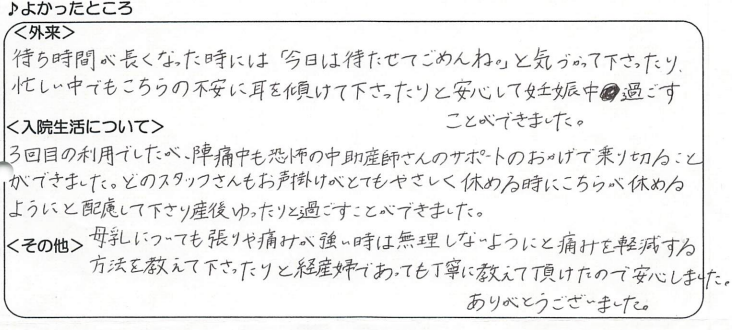 ♪よかったところ
<外来>
待ち時間が長くなった時には「今日は待たせてごめんね。」と気づかって下さったり、
忙しい中でもこちらの不安に耳を傾けて下さったりと安心して妊娠中過ごす
ことができました。
<入院生活について>
3回目の利用でしたが、陣痛中も恐怖の中助産師さんのサポートのおかげで乗り切ること
ができました。どのスタッフさんもお声掛けがとてもやさしく休める時にこちらが休める
ようにと配慮して下さり産後ゆったりと過ごすことができました。
<その他> 母乳についても張りや痛みが強い時は無理しないようにと痛みを軽減する
方法を教えて下さったりと経産婦であっても丁寧に教えて頂けたので安心しました。
ありがとうございました。